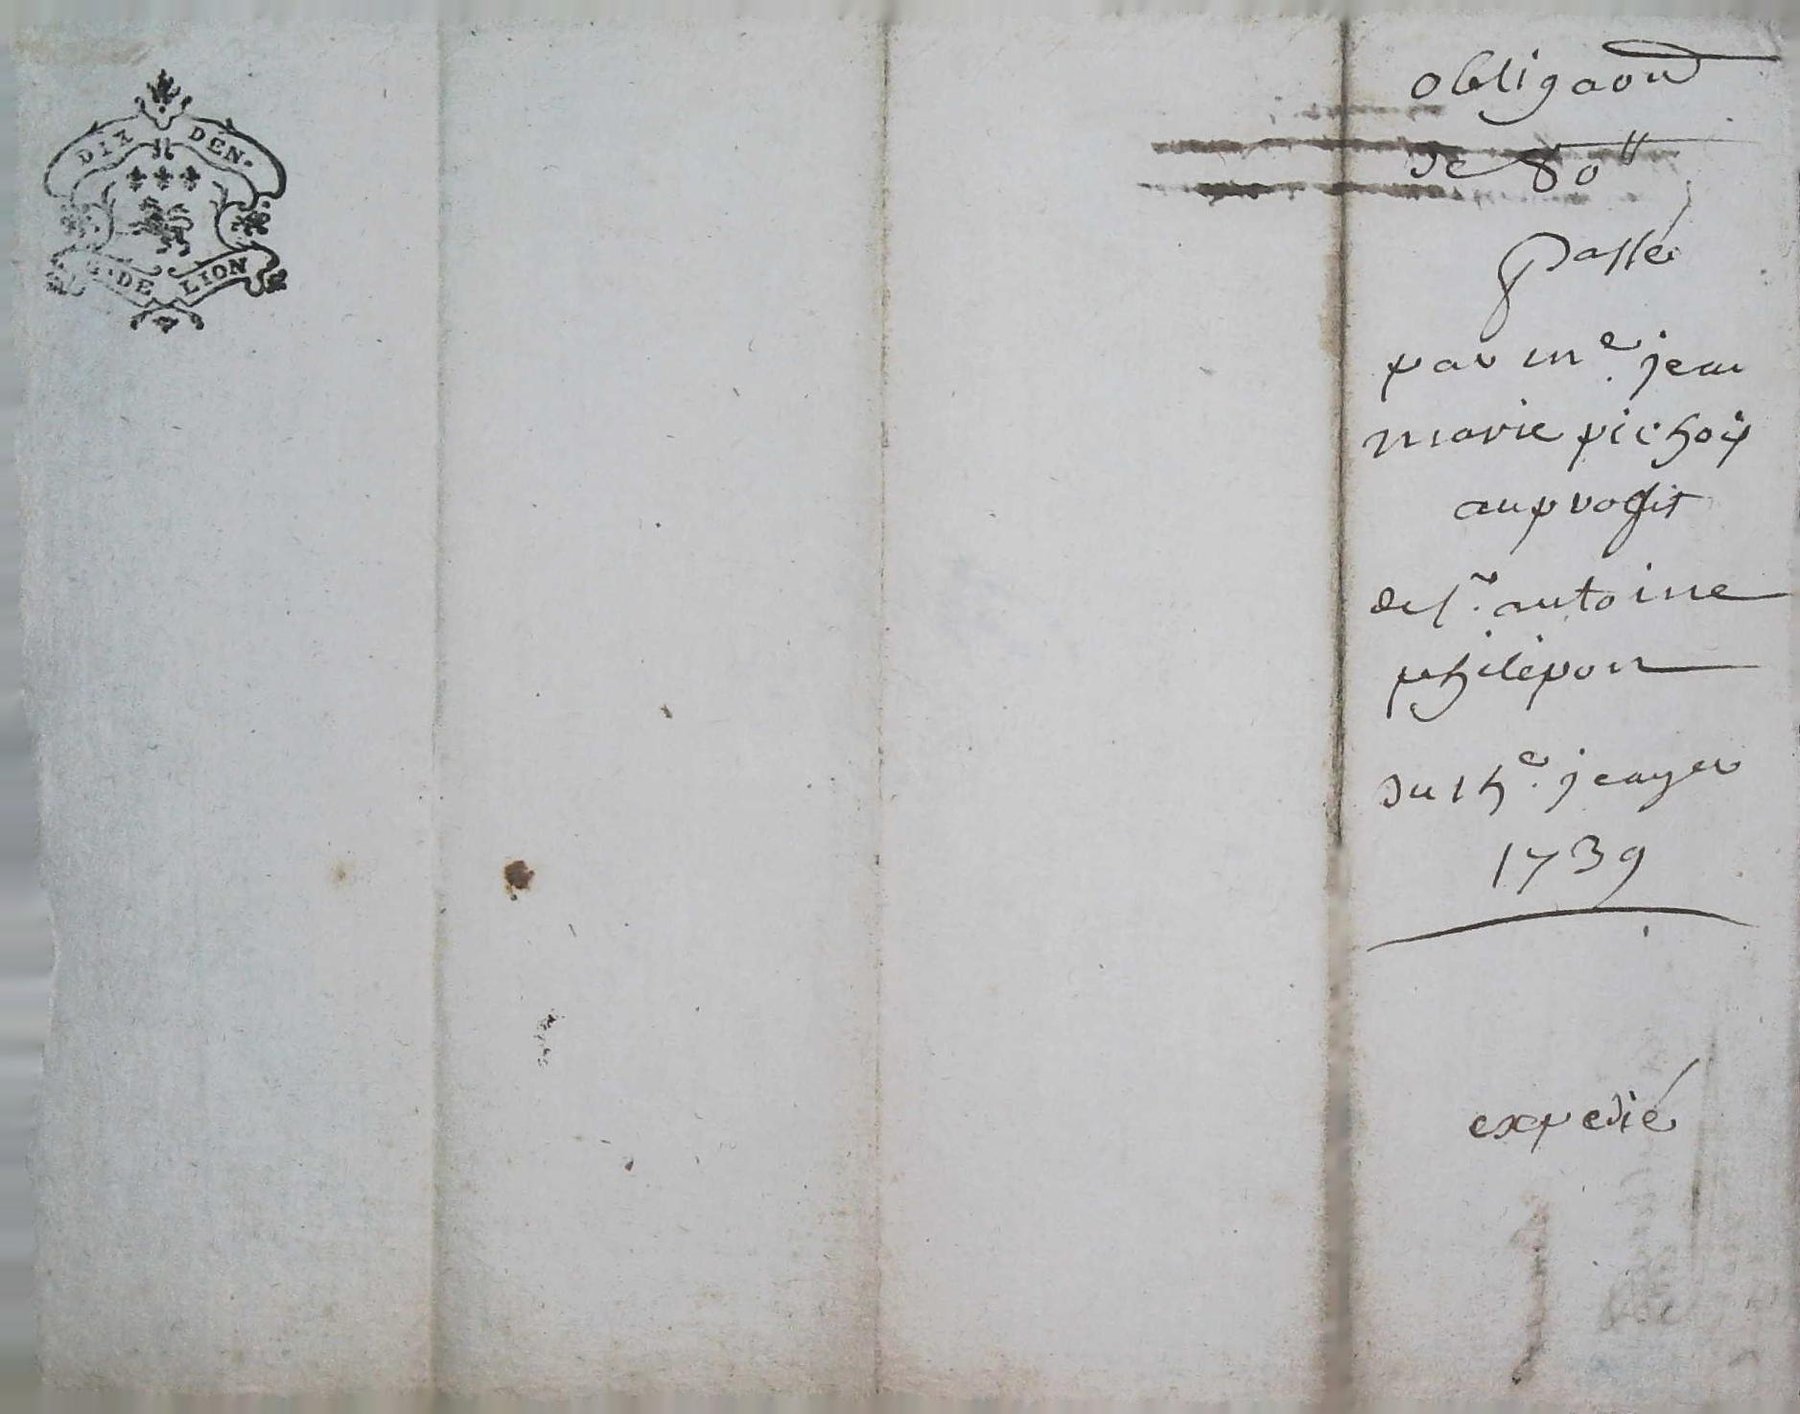 DIX DEN.
G. DE LION
obligaon
de 80ᵗᵗ
passé
par mᵉ. jean
marie pichoy
au profit
de sʳ. antoine
philipon
du 15ᵉ. jeanyer
1739
expedié